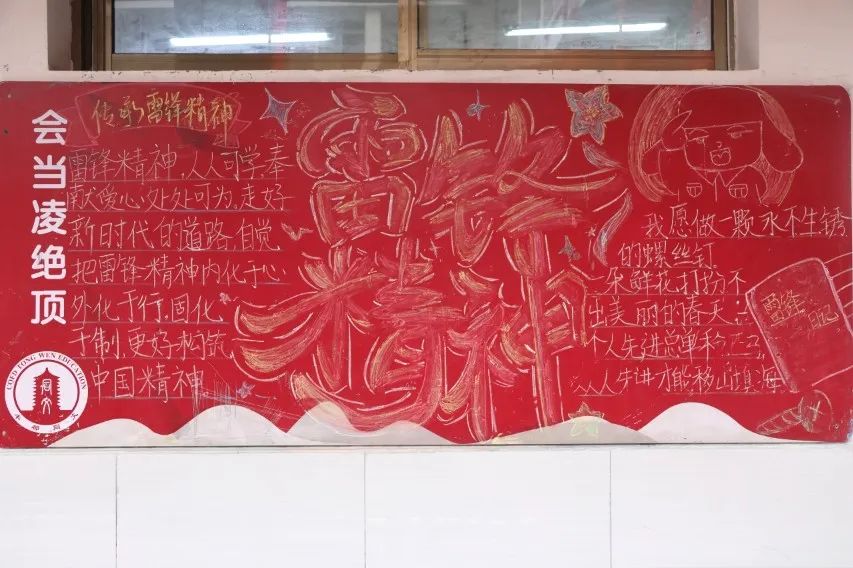 会当凌绝顶
雷锋精神
雷锋精神,人人可学;奉
献爱心,处处可为,走好
新时代的道路,自觉
把雷锋精神内化于心
外化于行,固化
于制,更好构筑
中国精神
雷锋
精神
我愿做一颗永不生锈
的螺丝钉
朵鲜花打扮不
出美丽的春天
个人先进总单
人先进才能移山填海
雷锋
日记
COLD TONG WEN EDUCATION